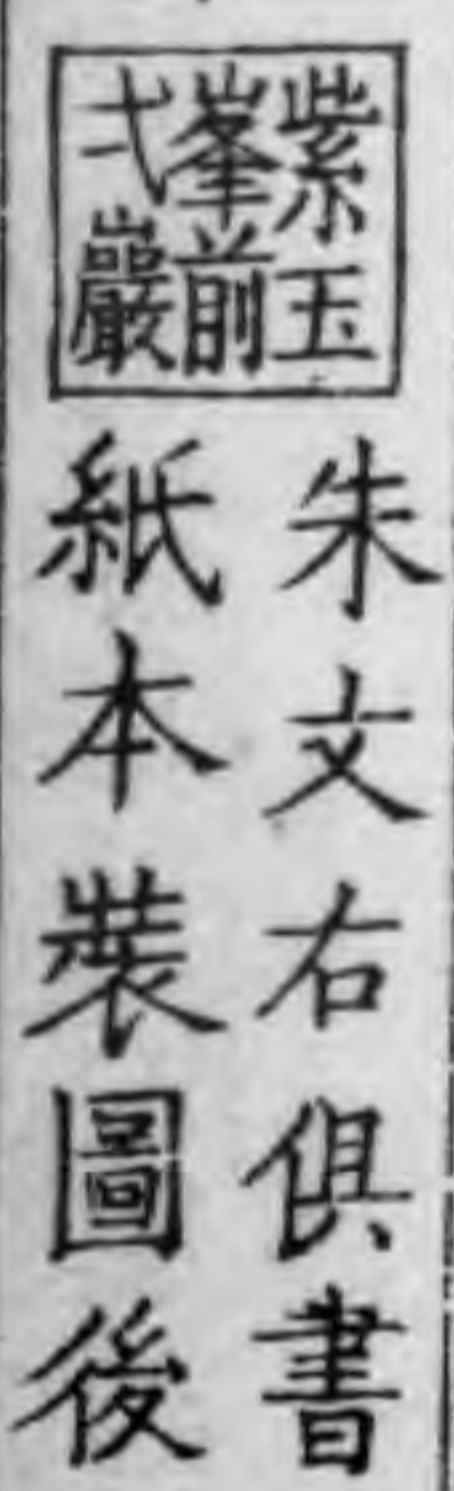 紫玉
峯前
弌巖
朱文右俱書
紙本裝圖後